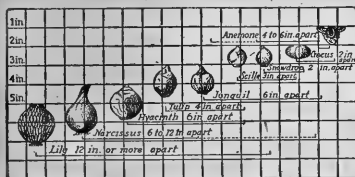 1in.
2in.
3in.
4in.
5in.
Anemone 4 to 6in. apart
Crocus 2in. apart
Snowdrop 2 in. apart
Scilla 3in. apart
Jonquil 6in. apart
Tulip 4in. apart
Hyacinth 6in. apart
Narcissus 6 to 12in apart
Lily 12 in. or more apart